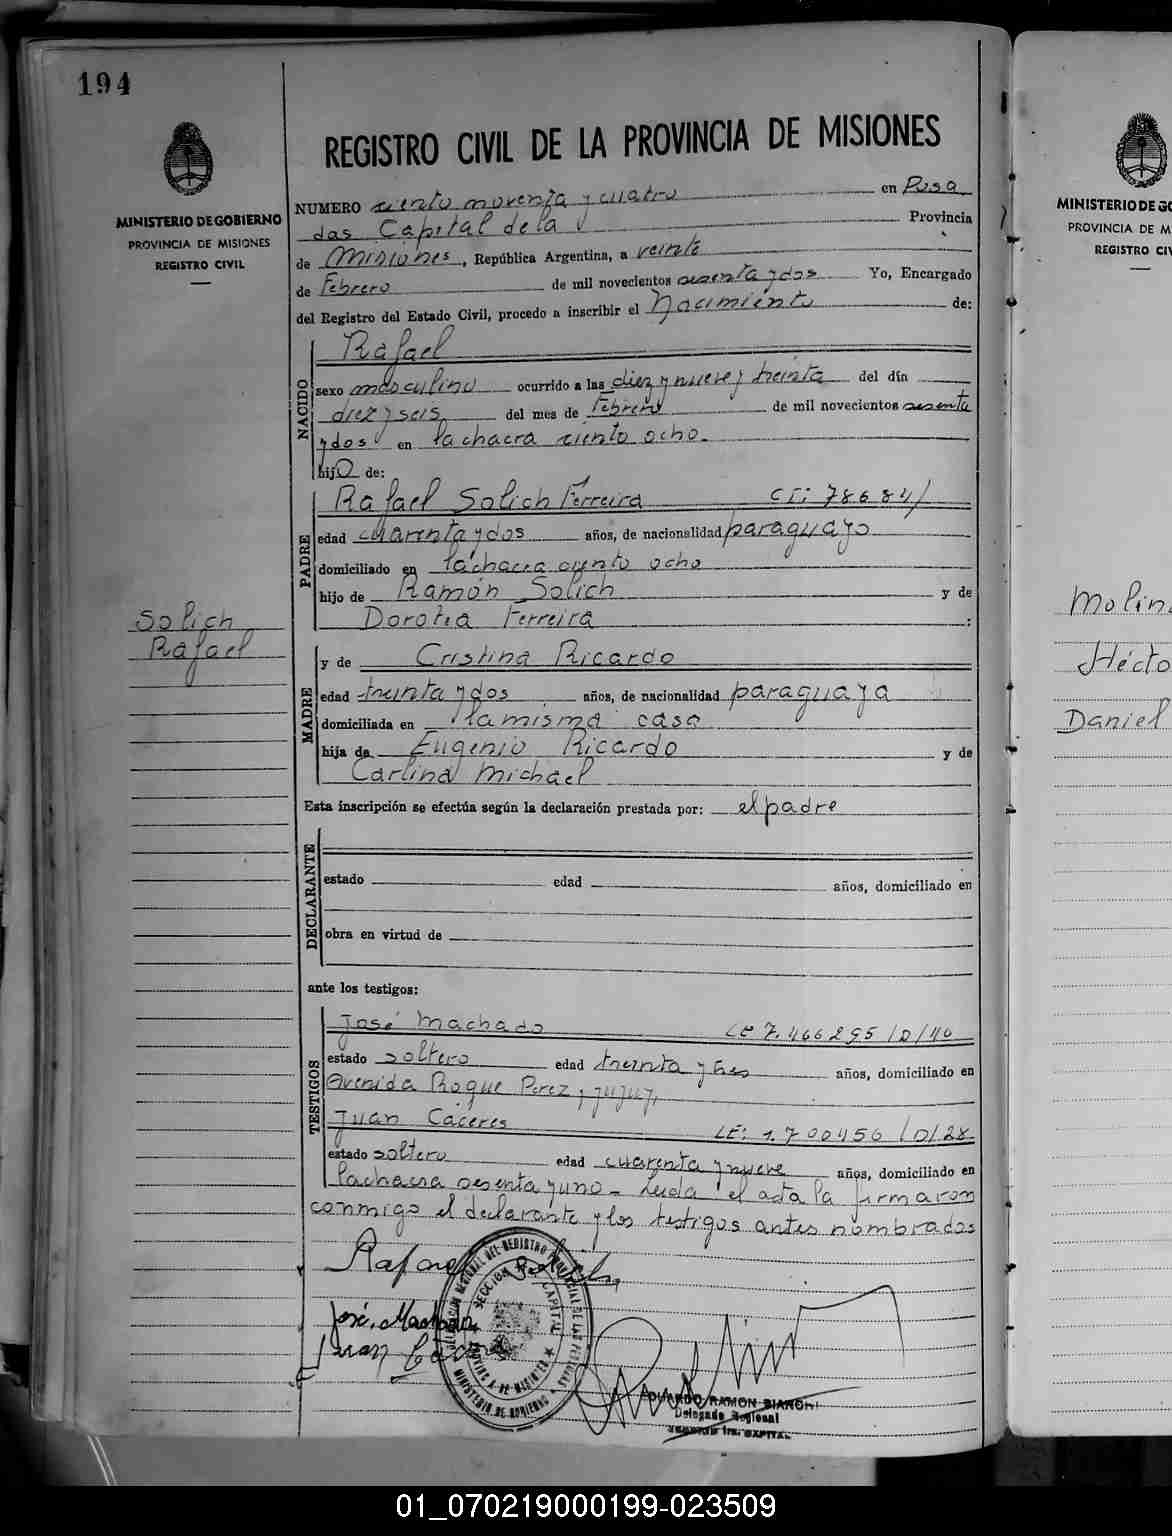 194
MINISTERIO DE GOBIERNO
PROVINCIA DE MISIONES
REGISTRO CIVIL
Solich
Rafael
REGISTRO CIVIL DE LA PROVINCIA DE MISIONES
NUMERO ciento noventa y cuatro en Posa
das Capital de la Provincia
de Misiones, República Argentina, a veinte
de Febrero de mil novecientos sesenta y dos Yo, Encargado
del Registro del Estado Civil, procedo a inscribir el Nacimiento de:
NACIDO
Rafael
sexo masculino ocurrido a las diez y nueve y treinta del día
diez y seis del mes de Febrero de mil novecientos sesenta
y dos en la chacra ciento ocho.
hijo de:
PADRE
Rafael Solich Ferreira CI: 78684/
edad cuarenta y dos años, de nacionalidad paraguayo
domiciliado en la chacra ciento ocho
hijo de Ramón Solich y de
Dorotea Ferreira :
MADRE
y de Cristina Ricardo
edad treinta y dos años, de nacionalidad paraguaya
domiciliada en la misma casa
hija de Eugenio Ricardo y de
Carlina Michael
Esta inscripción se efectúa según la declaración prestada por: el padre
DECLARANTE
estado edad años, domiciliado en
obra en virtud de
ante los testigos:
TESTIGOS
José Machado LE 7.466295/D/40
estado soltero edad treinta y tres años, domiciliado en
Avenida Roque Perez, jujuy,
Juan Cáceres LE: 1.700456/D/28
estado soltero edad cuarenta y nueve años, domiciliado en
la chacra sesenta y uno - Leida el acta la firmaron
conmigo el declarante y los testigos antes nombrados
Rafael Solich
José Machado
Juan Các
SECCION CAPITAL
MINISTERIO DE GOBIERNO
EDUARDO RAMON BIANCHI
Delegado Regional
MINISTERIO DE GO
PROVINCIA DE M
REGISTRO CIV
Molin
Hécto
Daniel
01_070219000199-023509